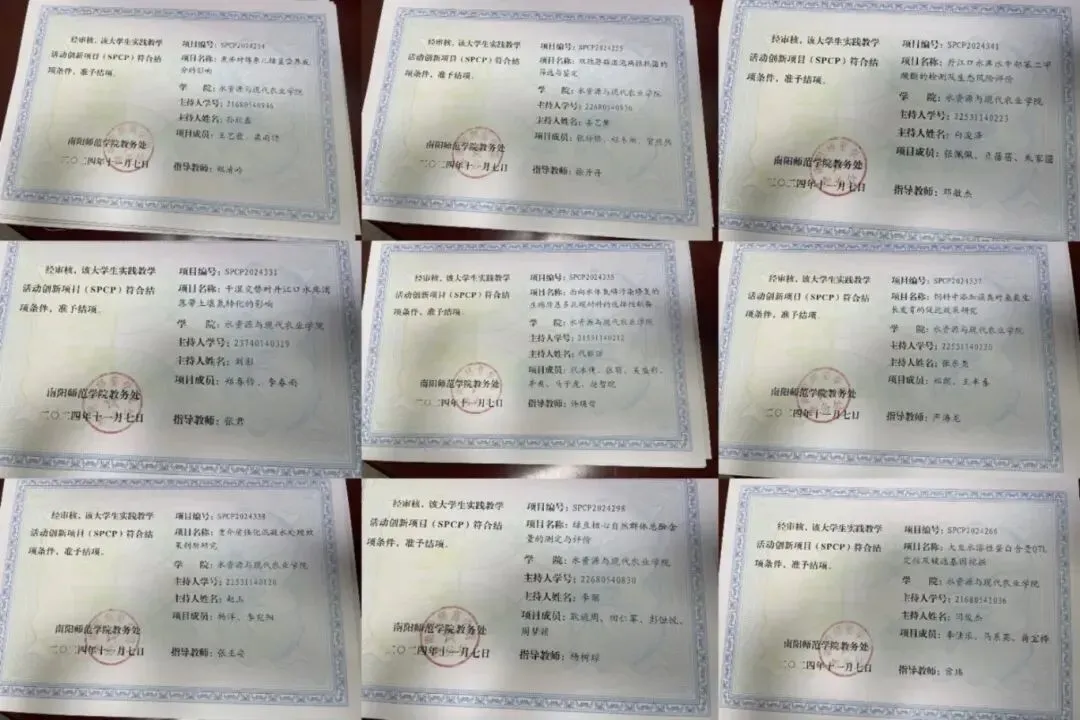 经审核,该大学生实践教学
活动创新项目(SPCP)符合结
项条件,准予结项。
南阳师范学院教务处
二〇二四年十一月七日
项目编号:SPCP2024254
项目名称:
分的影响
学 院:水资源与现代农业学院
主持人学号:21680540946
主持人姓名:孙欣鑫
项目成员:
指导教师:
经审核,该大学生实践教学
活动创新项目(SPCP)符合结
项条件,准予结项。
南阳师范学院教务处
二〇二四年十一月七日
项目编号:SPCP2024225
项目名称:
筛选与鉴定
学 院:水资源与现代农业学院
主持人学号:22680540936
主持人姓名:
项目成员:
指导教师:徐丹丹
经审核,该大学生实践教学
活动创新项目(SPCP)符合结
项条件,准予结项。
南阳师范学院教务处
二〇二四年十一月七日
项目编号:SPCP2024341
项目名称:丹江口水库水中邻苯二甲
酸酯的检测及生态风险评价
学 院:水资源与现代农业学院
主持人学号:22531140223
主持人姓名:向浚泽
项目成员:张佩佩、
指导教师:邓敏杰
经审核,该大学生实践教学
活动创新项目(SPCP)符合结
项条件,准予结项。
南阳师范学院教务处
二〇二四年十一月七日
项目编号:SPCP2024331
项目名称:干湿交替对丹江口水库消
落带土壤氮转化的影响
学 院:水资源与现代农业学院
主持人学号:23740140319
主持人姓名:刘彤
项目成员:郑春怡、李春雨
指导教师:张君
经审核,该大学生实践教学
活动创新项目(SPCP)符合结
项条件,准予结项。
南阳师范学院教务处
二〇二四年十一月七日
项目编号:SPCP2024335
项目名称:面向水体氮磷污染修复的
学 院:水资源与现代农业学院
主持人学号:21531140212
主持人姓名:
项目成员:
指导教师:
经审核,该大学生实践教学
活动创新项目(SPCP)符合结
项条件,准予结项。
南阳师范学院教务处
二〇二四年十一月七日
项目编号:SPCP2024337
项目名称:
长发育的促进效果研究
学 院:水资源与现代农业学院
主持人学号:22531140220
主持人姓名:
项目成员:
指导教师:严海龙
经审核,该大学生实践教学
活动创新项目(SPCP)符合结
项条件,准予结项。
南阳师范学院教务处
二〇二四年十一月七日
项目编号:SPCP2024338
项目名称:
果机制研究
学 院:水资源与现代农业学院
主持人学号:21531140120
主持人姓名:赵垚
项目成员:杨洋、
指导教师:
经审核,该大学生实践教学
活动创新项目(SPCP)符合结
项条件,准予结项。
南阳师范学院教务处
二〇二四年十一月七日
项目编号:SPCP2024298
项目名称:绿豆核心自然群体总酚含
量的测定与评价
学 院:水资源与现代农业学院
主持人学号:22680540830
主持人姓名:李丽
项目成员:
周梦颖
指导教师:杨树琼
经审核,该大学生实践教学
活动创新项目(SPCP)符合结
项条件,准予结项。
南阳师范学院教务处
二〇二四年十一月七日
项目编号:SPCP2024266
项目名称:大豆水溶性蛋白含量QTL
定位及候选基因挖掘
学 院:水资源与现代农业学院
主持人学号:21680541036
主持人姓名:闫俊杰
项目成员:李佳乐、马乐英、蒋宝婷
指导教师:宫玮